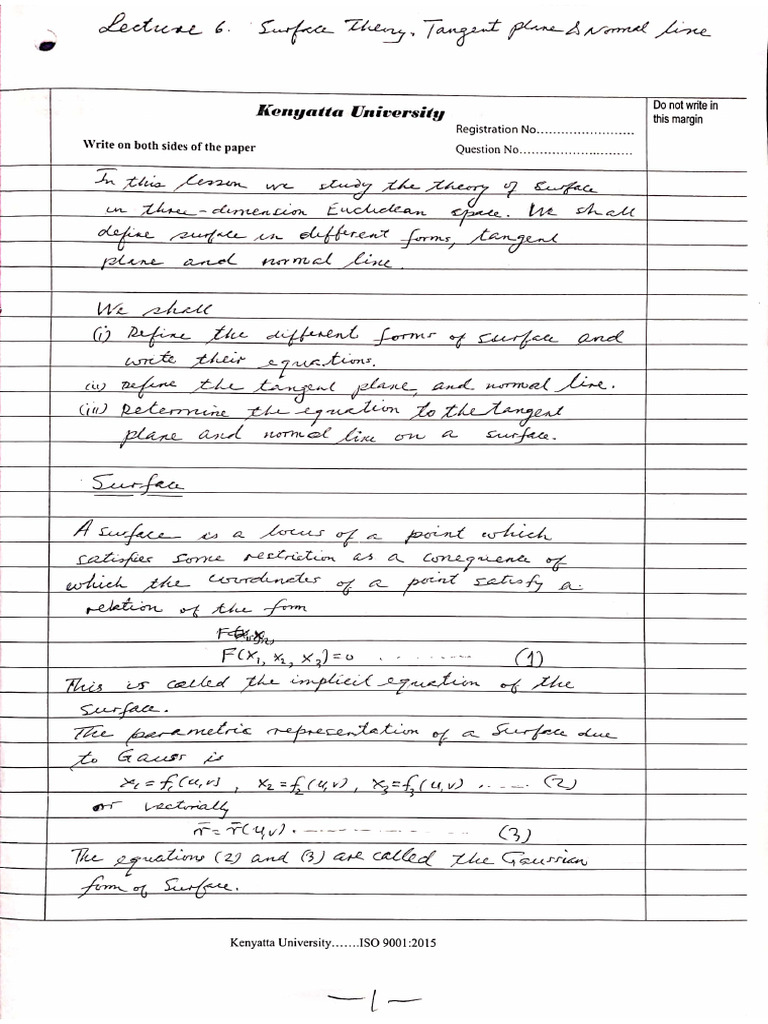 Lecture 6. Surface Theory, Tangent plane & Normal line
Kenyatta University
Do not write in
this margin
Registration No........................
Write on both sides of the paper
Question No......................
In this lesson we study the theory of surface
in three-dimension Euclidean space. We shall
define surface in different forms, tangent
plane and normal line.
We shall
(i) Define the different forms of surface and
write their equations.
(ii) Define the tangent plane, and normal line.
(iii) Determine the equation to the tangent
plane and normal line on a surface.
Surface
A surface is a locus of a point which
satisfies some restriction as a conequence of
which the coordinates of a point satisfy a
relation of the form
F(x₁, x₂, x₃)=0 ......... (1)
This is called the implicit equation of the
surface.
The parametric representation of a surface due
to Gauss is
x₁=f₁(u,v), x₂=f₂(u,v), x₃=f₃(u,v) ...... (2)
or vectorially
r̄=r̄(u,v). .............. (3)
The equations (2) and (3) are called the Gaussian
form of Surface.
Kenyatta University.......ISO 9001:2015
—1—